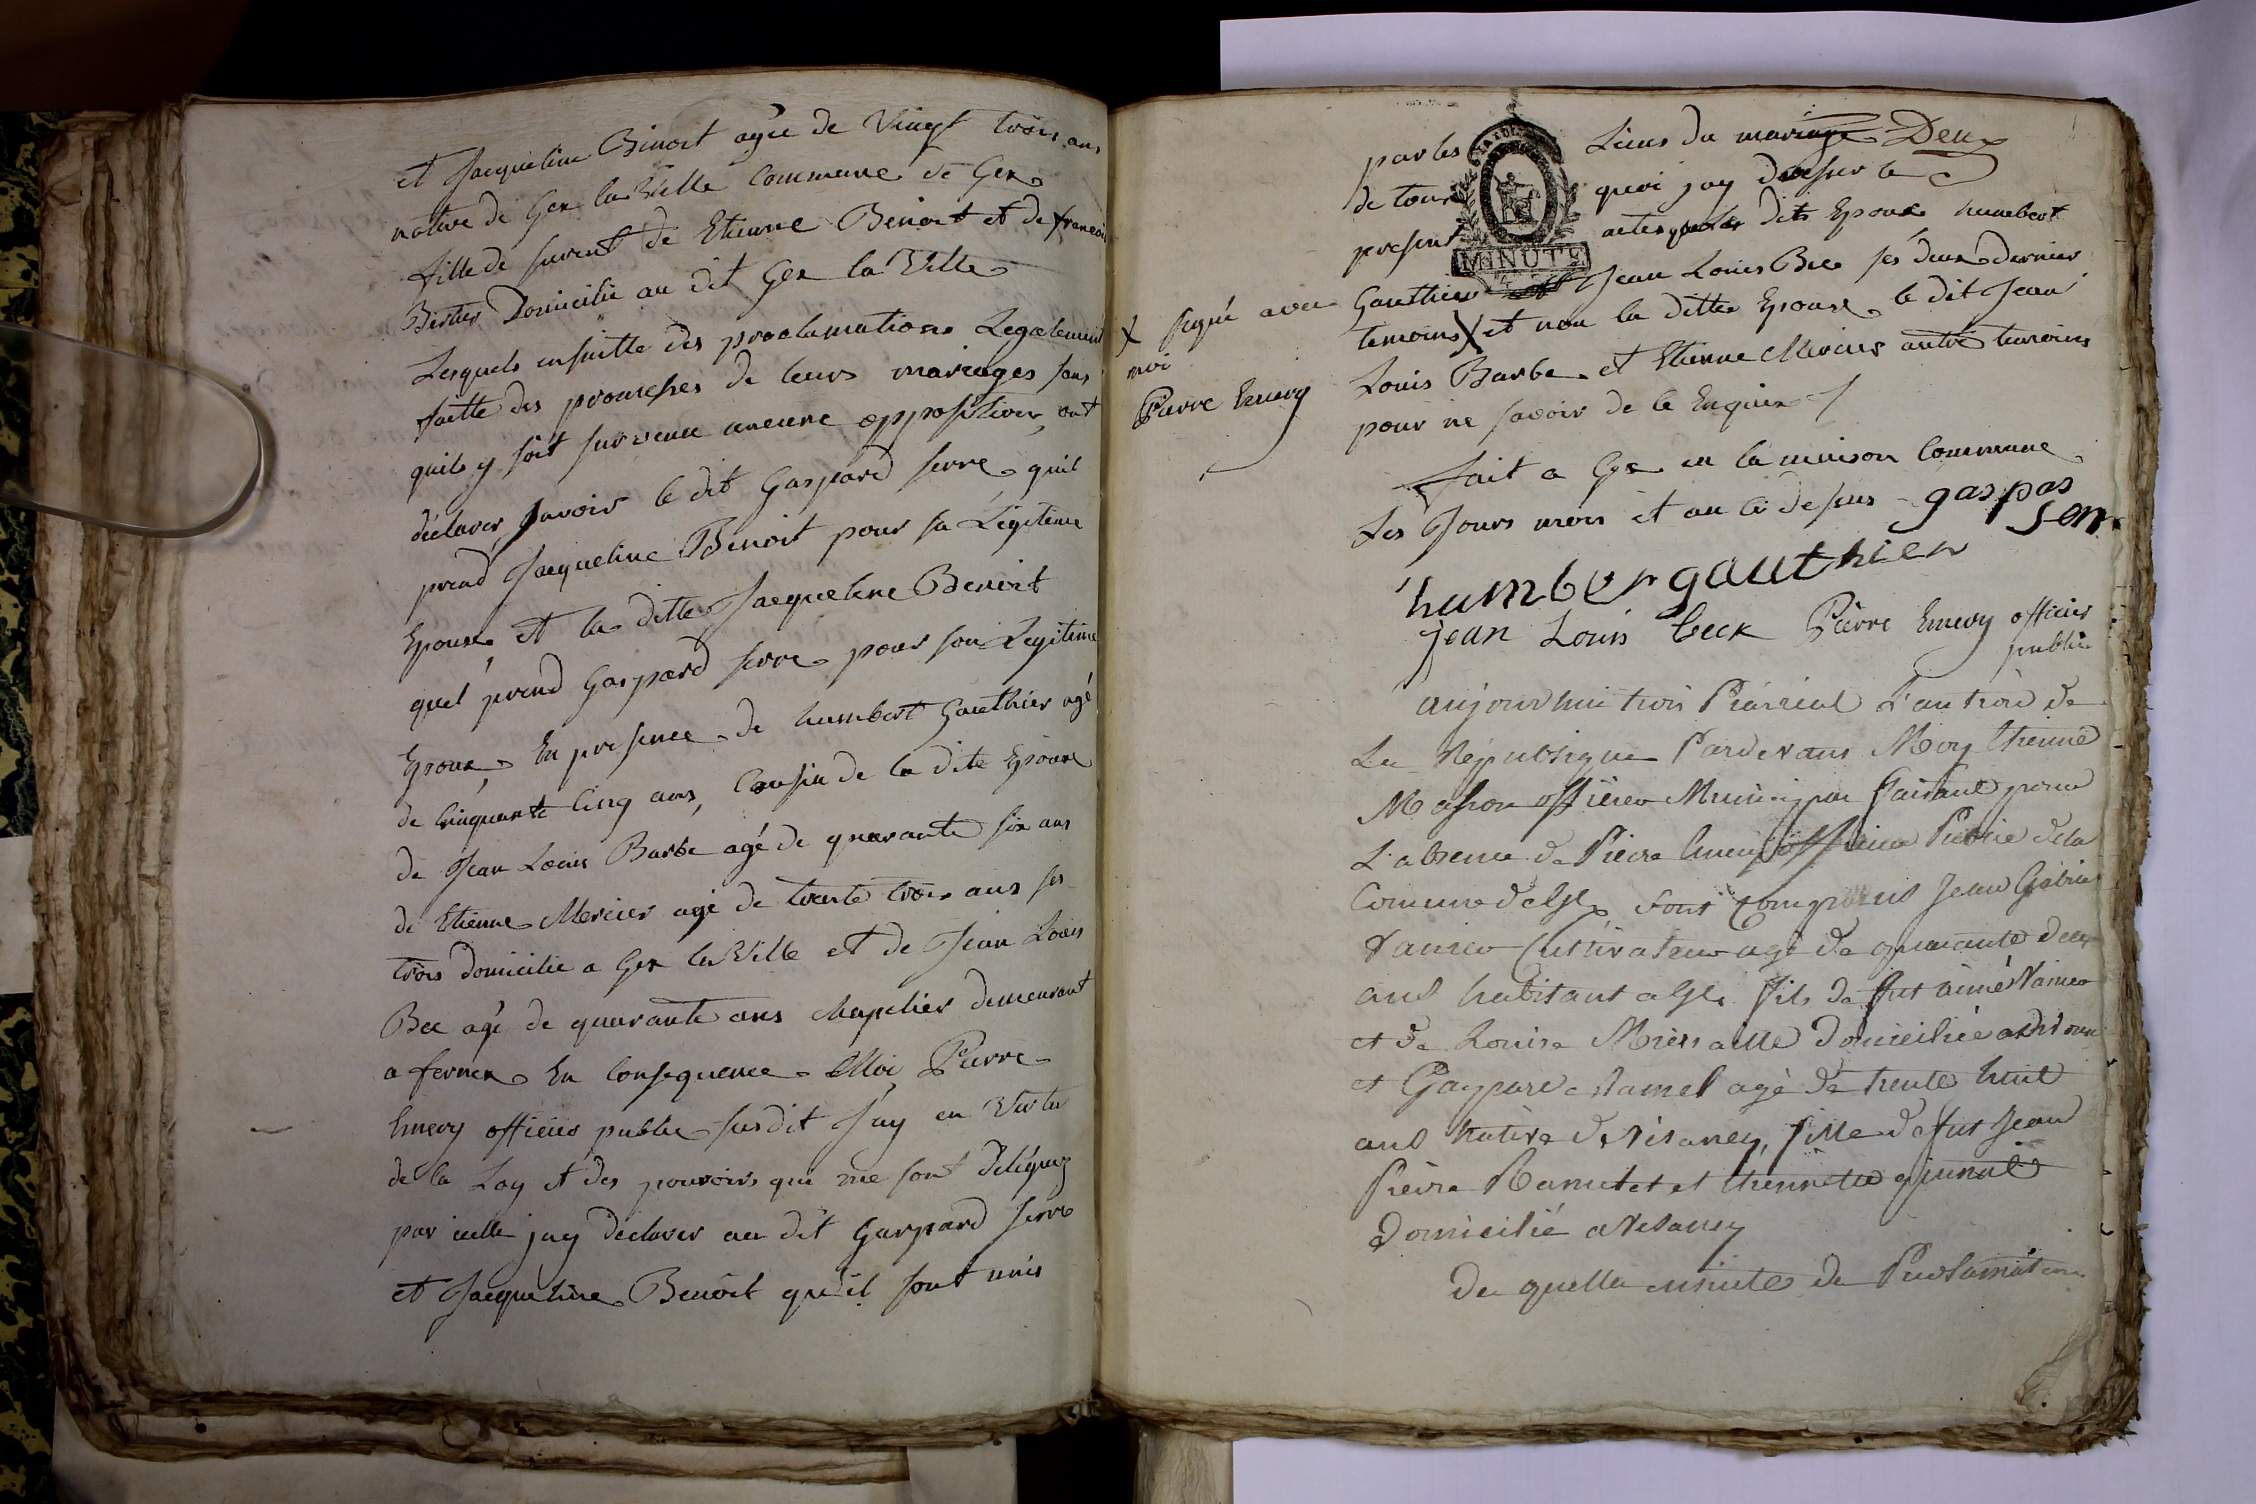 et Jacqueline Benoit agée de Vingt trois ans
native de Gex la Ville Commune de Gex
fille de furent de Etienne Benoit et de francoi
Domicilié au dit Gex la Ville
Lesquels ensuitte des proclamations Legalement
faitte des promesses de leurs mariages sans
quil y soit survenue aucune opposition, ont
déclarer savoir le dit Gaspard serre quil
prend Jacqueline Benoit pour sa Légitime
Epouse et la ditte Jacqueline Benoit
quel prend Gaspard serre pour son Legitime
Epoux, En presence de humbert Gauthier agé
de Cinquante Cinq ans, Cousin de la dite Epouse
de Jean Louis Barbe agé de quarante six ans
de Etienne Mercier agé de trente trois ans ses
trois domicilié a Gex la Ville et de Jean Louis
Bec agé de quarante ans Chapelier demeurant
a fernex En Consequence Moi Pierre
Emery officier public susdit J'ay en Vertu
de la Loy et des pouvoirs qui me sont Délégués
par icelle jay déclarer au dit Gaspard serre
et Jacqueline Benoit qu'il sont unis
par les Liens du mariage Deux
de tour quoi jay dresser le
present MINUTE actes dits Epoux humbert
Gauthier Jean Louis Bec ses deux dernier
temoins X et non la ditte Epouse le dit Jean
X signé avec
moi
Pierre Emery
Louis Barbe et Etienne Mercier autre temoins
pour ne savoir de le Enquis
fait a Gex en la maison Commune
Les Jours mois et an ci dessus gaspas
serr
humber gauthier
jean Louis beck Pierre Emery officier
public
aujourdhui trois Prairial L'an trois de
La République Pardevant Moy thienne
Masson officier Municipau faisant pour
L'absence de Pierre Emery officier Public de la
Comune de Gex sont Comparus Jean
Cultivateur agé de quarante deux
ans habitant a Gex fils de fut aimé
et de Louise domiciliée
et Gaspard agé de trente huit
ans native de Vesaney, fille de fut Jean
Pierre et thiennette
Domicilié a Vesaney
De quelle ensuite de Proclamation